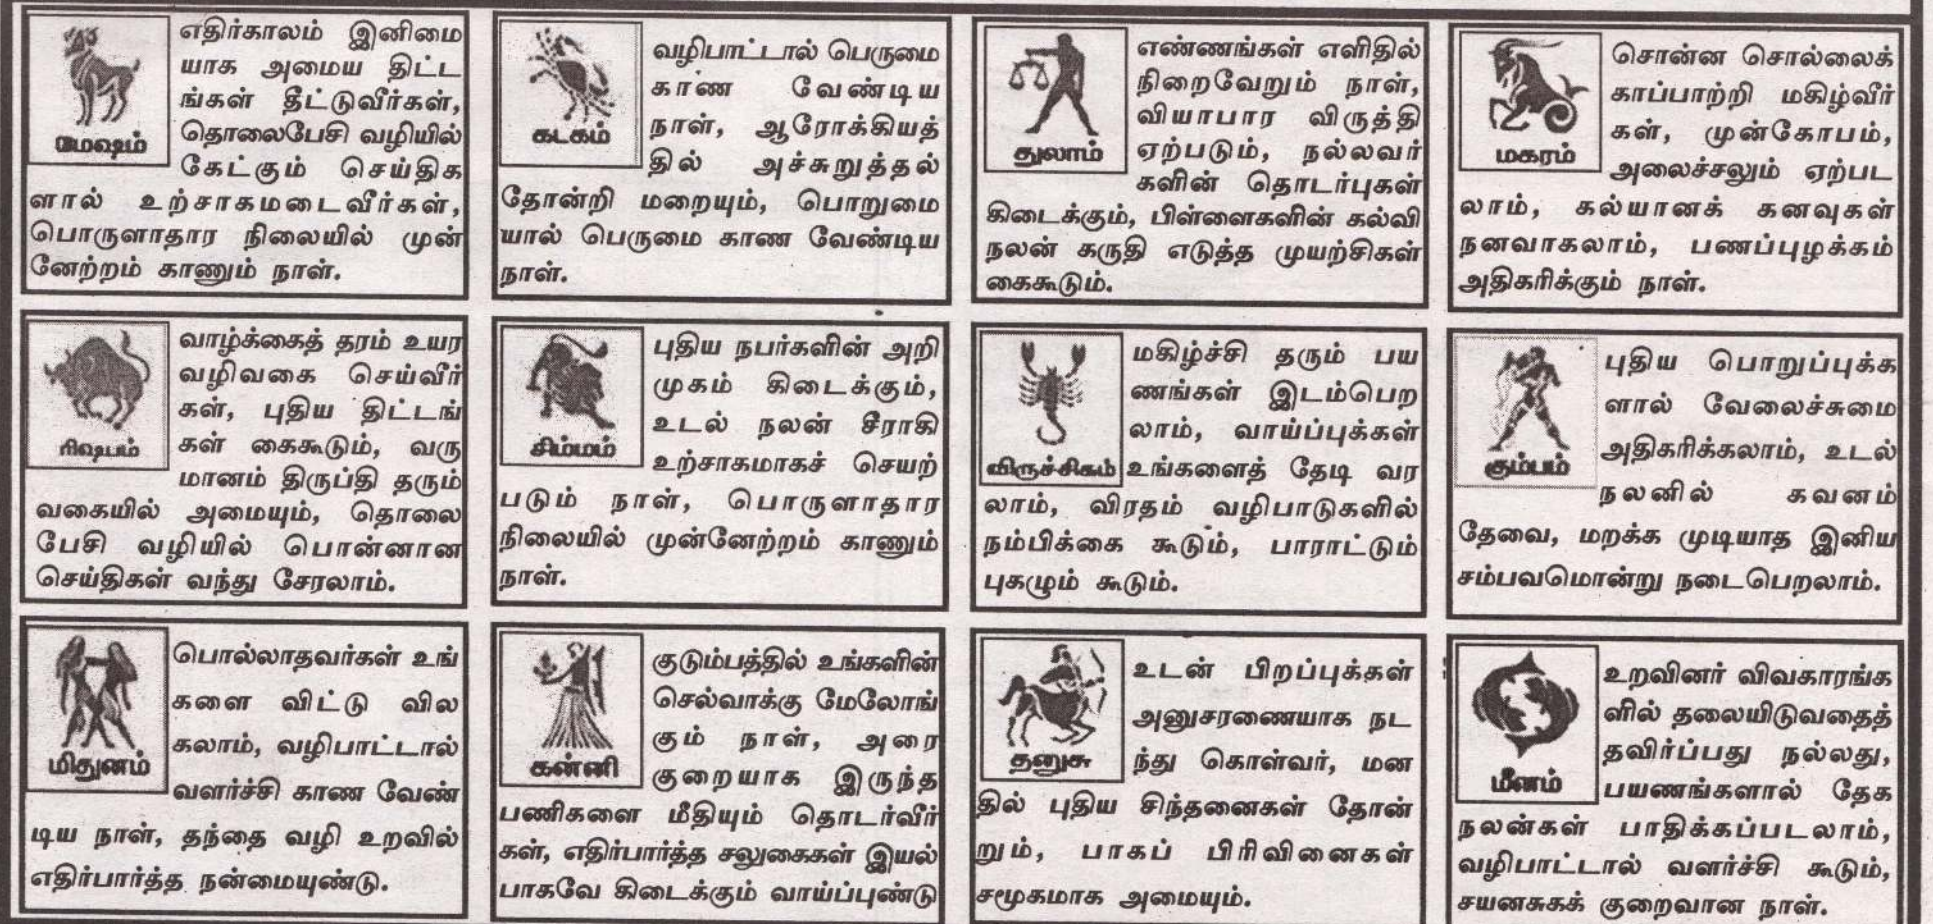 எதிர்காலம் இனிமை
யாக அமைய திட்ட
ங்கள் தீட்டுவீர்கள்,
தொலைபேசி வழியில்
மேஷம்
கேட்கும் செய்திக
ளால் உற்சாகமடைவீர்கள்,
பொருளாதார நிலையில் முன்
னேற்றம் காணும் நாள்.
வாழ்க்கைத் தரம் உயர
வழிவகை செய்வீர்
கள், புதிய திட்டங்
கள் கைகூடும், வரு
ரிஷபம்
மானம் திருப்தி தரும்
வகையில் அமையும், தொலை
பேசி வழியில் பொன்னான
செய்திகள் வந்து சேரலாம்.
பொல்லாதவர்கள் உங்
களை விட்டு வில
கலாம், வழிபாட்டால்
மிதுனம்
வளர்ச்சி காண வேண்
டிய நாள், தந்தை வழி உறவில்
எதிர்பார்த்த நன்மையுண்டு.
வழிபாட்டால் பெருமை
காண வேண்டிய
நாள், ஆரோக்கியத்
கடகம்
தில் அச்சுறுத்தல்
தோன்றி மறையும், பொறுமை
யால் பெருமை காண வேண்டிய
நாள்.
புதிய நபர்களின் அறி
முகம் கிடைக்கும்,
உடல் நலன் சீராகி
சிம்மம்
உற்சாகமாகச் செயற்
படும் நாள், பொருளாதார
நிலையில் முன்னேற்றம் காணும்
நாள்.
குடும்பத்தில் உங்களின்
செல்வாக்கு மேலோங்
கும் நாள், அரை
கன்னி
குறையாக இருந்த
பணிகளை மீதியும் தொடர்வீர்
கள், எதிர்பார்த்த சலுகைகள் இயல்
பாகவே கிடைக்கும் வாய்ப்புண்டு
எண்ணங்கள் எளிதில்
நிறைவேறும் நாள்,
வியாபார விருத்தி
துலாம்
ஏற்படும், நல்லவர்
களின் தொடர்புகள்
கிடைக்கும், பிள்ளைகளின் கல்வி
நலன் கருதி எடுத்த முயற்சிகள்
கைகூடும்.
மகிழ்ச்சி தரும் பய
ணங்கள் இடம்பெற
லாம், வாய்ப்புக்கள்
விருச்சிகம்
உங்களைத் தேடி வர
லாம், விரதம் வழிபாடுகளில்
நம்பிக்கை கூடும், பாராட்டும்
புகழும் கூடும்.
உடன் பிறப்புக்கள்
அனுசரணையாக நட
தனுசு
ந்து கொள்வர், மன
தில் புதிய சிந்தனைகள் தோன்
றும், பாகப் பிரிவினைகள்
சமூகமாக அமையும்.
சொன்ன சொல்லைக்
காப்பாற்றி மகிழ்வீர்
கள், முன்கோபம்,
மகரம்
அலைச்சலும் ஏற்பட
லாம், கல்யானக் கனவுகள்
நனவாகலாம், பணப்புழக்கம்
அதிகரிக்கும் நாள்.
புதிய பொறுப்புக்க
ளால் வேலைச்சுமை
அதிகரிக்கலாம், உடல்
கும்பம்
நலனில் கவனம்
தேவை, மறக்க முடியாத இனிய
சம்பவமொன்று நடைபெறலாம்.
உறவினர் விவகாரங்க
ளில் தலையிடுவதைத்
தவிர்ப்பது நல்லது,
மீனம்
பயணங்களால் தேக
நலன்கள் பாதிக்கப்படலாம்,
வழிபாட்டால் வளர்ச்சி கூடும்,
சயனசுகக் குறைவான நாள்.